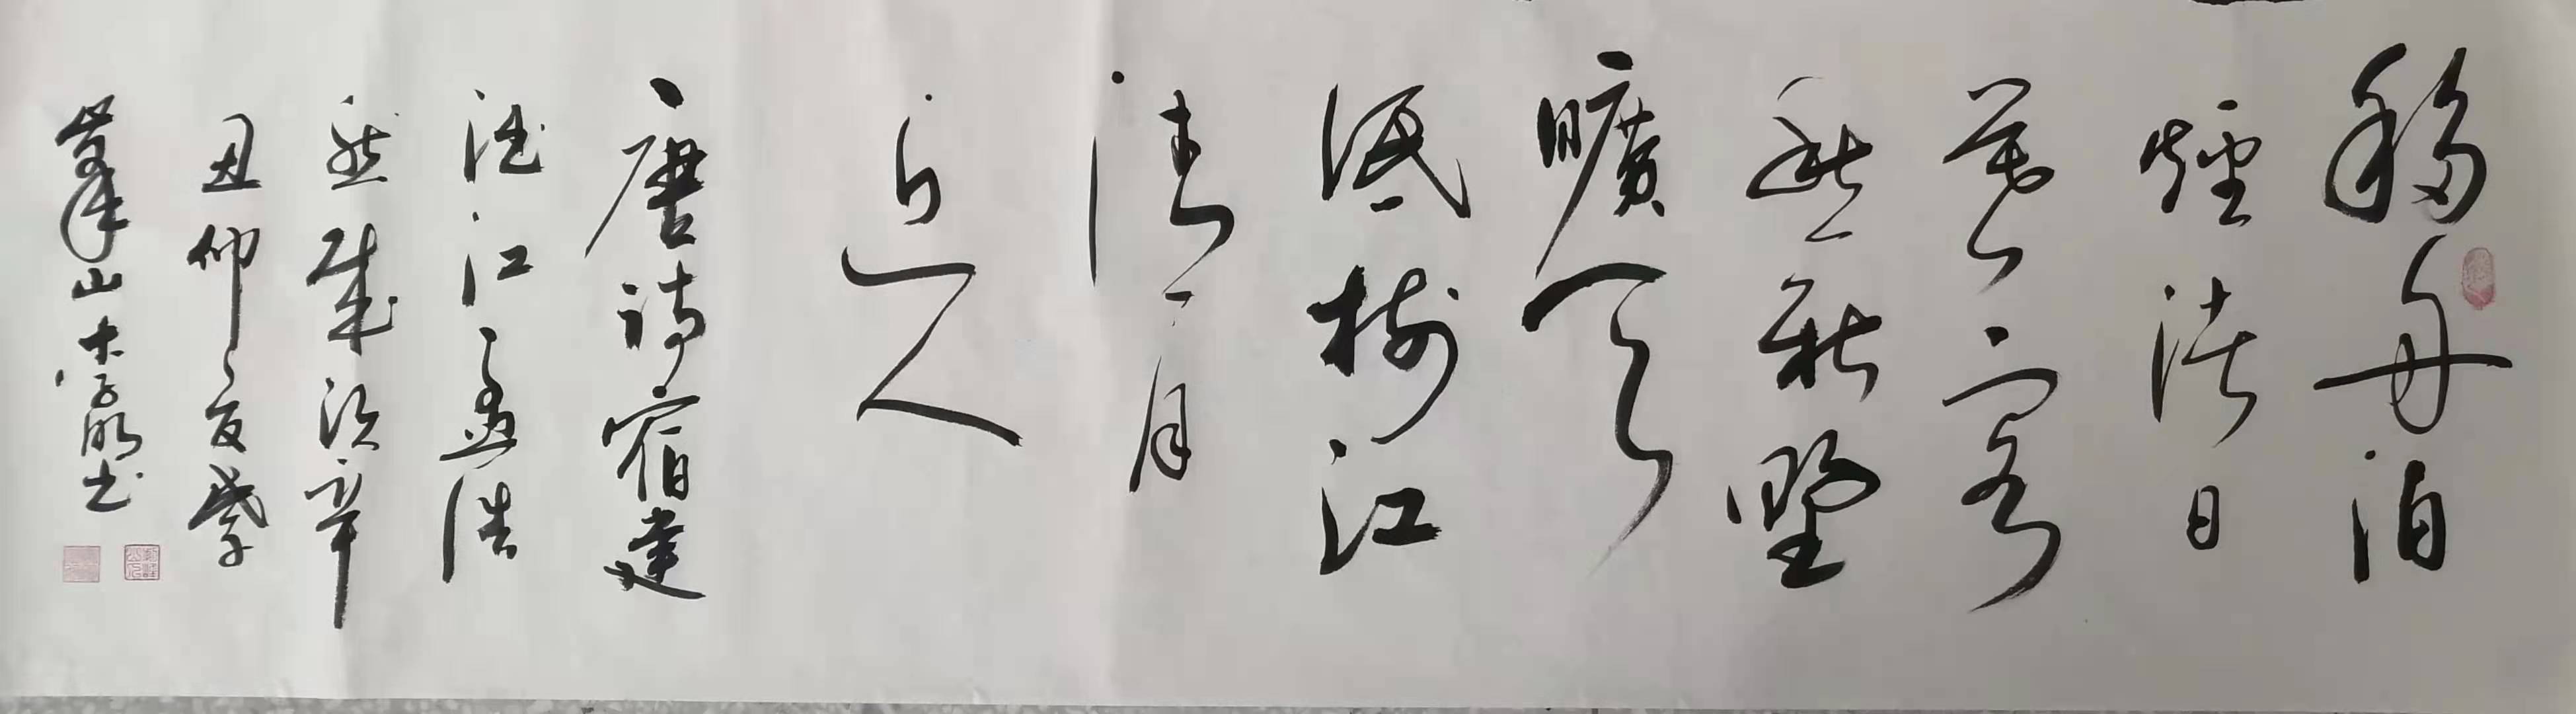 移舟泊
煙渚日
暮客
愁新野
曠天
低樹江
清月
近人
唐詩宿建
德江孟浩
然歲次辛
丑仲夏
山明书